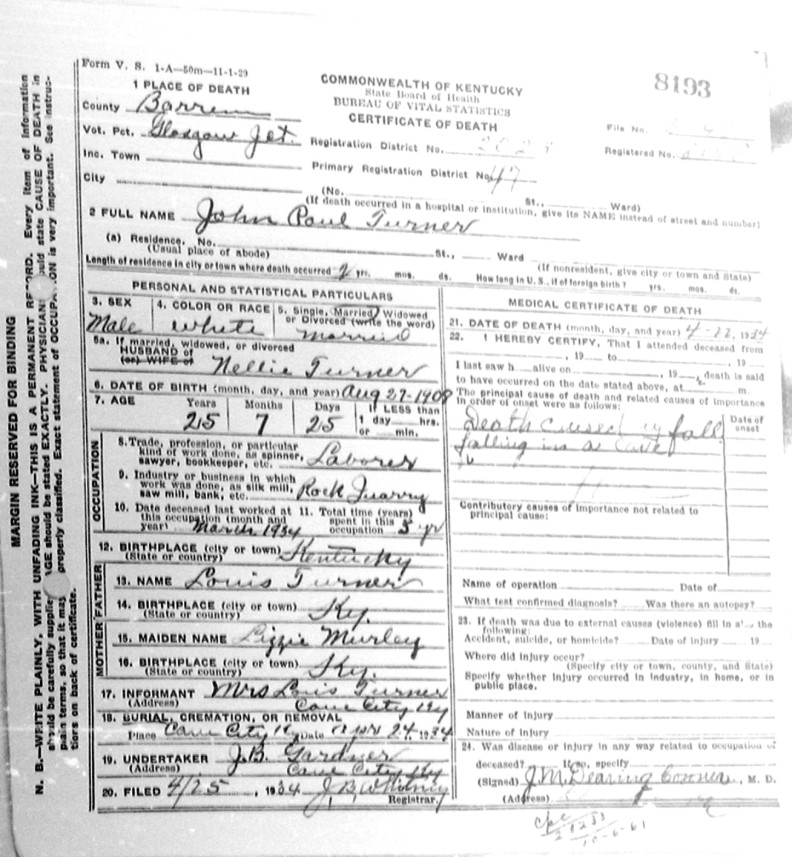 Form V. S. 1-A—50m—11-1-29
8193
COMMONWEALTH OF KENTUCKY
State Board of Health
BUREAU OF VITAL STATISTICS
CERTIFICATE OF DEATH
1 PLACE OF DEATH
County Barren
Vot. Pct. Glasgow Jct.
Inc. Town
City
Registration District No.
File No.
Primary Registration District No. 47
Registered No.
(No. St., Ward)
(If death occurred in a hospital or institution, give its NAME instead of street and number)
2 FULL NAME John Paul Turner
(a) Residence. No. St., Ward
(Usual place of abode) (If nonresident, give city or town and State)
Length of residence in city or town where death occurred 2 yrs. mos. ds. How long in U. S., if of foreign birth? yrs. mos. ds.
PERSONAL AND STATISTICAL PARTICULARS
3. SEX 4. COLOR OR RACE 5. Single, Married, Widowed
or Divorced (write the word)
Male White Married
5a. If married, widowed, or divorced
HUSBAND of
(or) WIFE of Nellie Turner
6. DATE OF BIRTH (month, day, and year) Aug 27-1908
7. AGE Years Months Days If LESS than
1 day hrs.
or min.
25 7 25
OCCUPATION
8. Trade, profession, or particular
kind of work done, as spinner,
sawyer, bookkeeper, etc. Laborer
9. Industry or business in which
work was done, as silk mill,
saw mill, bank, etc. Rock Quarry
10. Date deceased last worked at 11. Total time (years)
this occupation (month and spent in this
year) March 1934 occupation 5 yr
12. BIRTHPLACE (city or town)
(State or country) Kentucky
FATHER
13. NAME Louis Turner
14. BIRTHPLACE (city or town)
(State or country) Ky.
MOTHER
15. MAIDEN NAME Lizzie Murley
16. BIRTHPLACE (city or town)
(State or country) Ky.
17. INFORMANT Mrs Louis Turner
(Address) Cave City Ky
18. BURIAL, CREMATION, OR REMOVAL
Place Cave City Ky Date Apr 24, 1934
19. UNDERTAKER J.B. Gardner
(Address) Cave City Ky
20. FILED 4/25, 1934
Registrar.
MEDICAL CERTIFICATE OF DEATH
21. DATE OF DEATH (month, day, and year) 4-22, 1934
22. I HEREBY CERTIFY, That I attended deceased from
, 19 to , 19
I last saw h alive on , 19 , death is said
to have occurred on the date stated above, at m.
The principal cause of death and related causes of importance
in order of onset were as follows:
Date of
onset
Death caused by fall
falling in a cave
Contributory causes of importance not related to
principal cause:
Name of operation Date of
What test confirmed diagnosis? Was there an autopsy?
23. If death was due to external causes (violence) fill in also the
following:
Accident, suicide, or homicide? Date of injury 19
Where did injury occur?
(Specify city or town, county, and State)
Specify whether injury occurred in industry, in home, or in
public place.
Manner of Injury
Nature of Injury
24. Was disease or injury in any way related to occupation of
deceased? If so, specify
(Signed) J.M. Dearing Coroner, M. D.
(Address)
10-6-61
MARGIN RESERVED FOR BINDING
N. B.—WRITE PLAINLY, WITH UNFADING INK—THIS IS A PERMANENT RECORD. Every item of information
should be carefully supplied. AGE should be stated EXACTLY. PHYSICIANS should state CAUSE OF DEATH in
plain terms, so that it may properly classified. Exact statement of OCCUPATION is very important. See instruc-
tions on back of certificate.